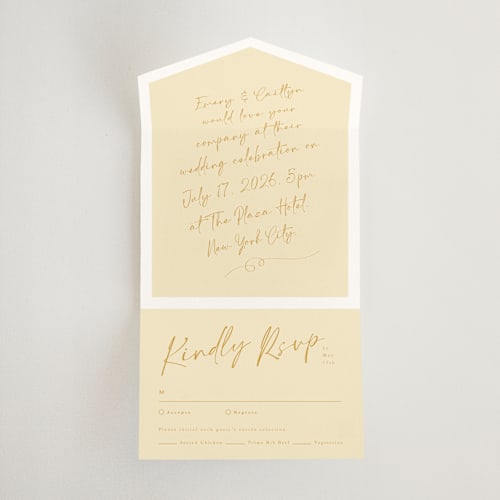 Emery & Caitlyn
would love your
company at their
wedding celebration on
July 17, 2026, 5pm
at The Plaza Hotel,
New York City
Kindly Rsvp
by
May
15th
M
Accepts Regrets
Please initial each guest's entrée selection
Seared Chicken Prime Rib Beef Vegetarian